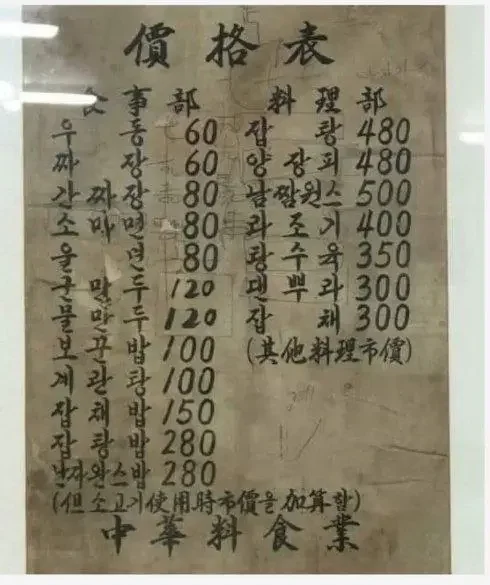 價格表
食事部
우동 60
짜장 60
간짜장 80
소마면 80
울면 80
군만두 120
물만두 120
보끈밥 100
계란탕 100
잡채밥 150
잡탕밥 280
난자완스밥 280
料理部
잡탕 480
양장피 480
남짬원스 500
라조기 400
탕수육 350
덴뿌라 300
잡채 300
(其他料理市價)
(但소고기使用時市價을加算함)
中華料食業